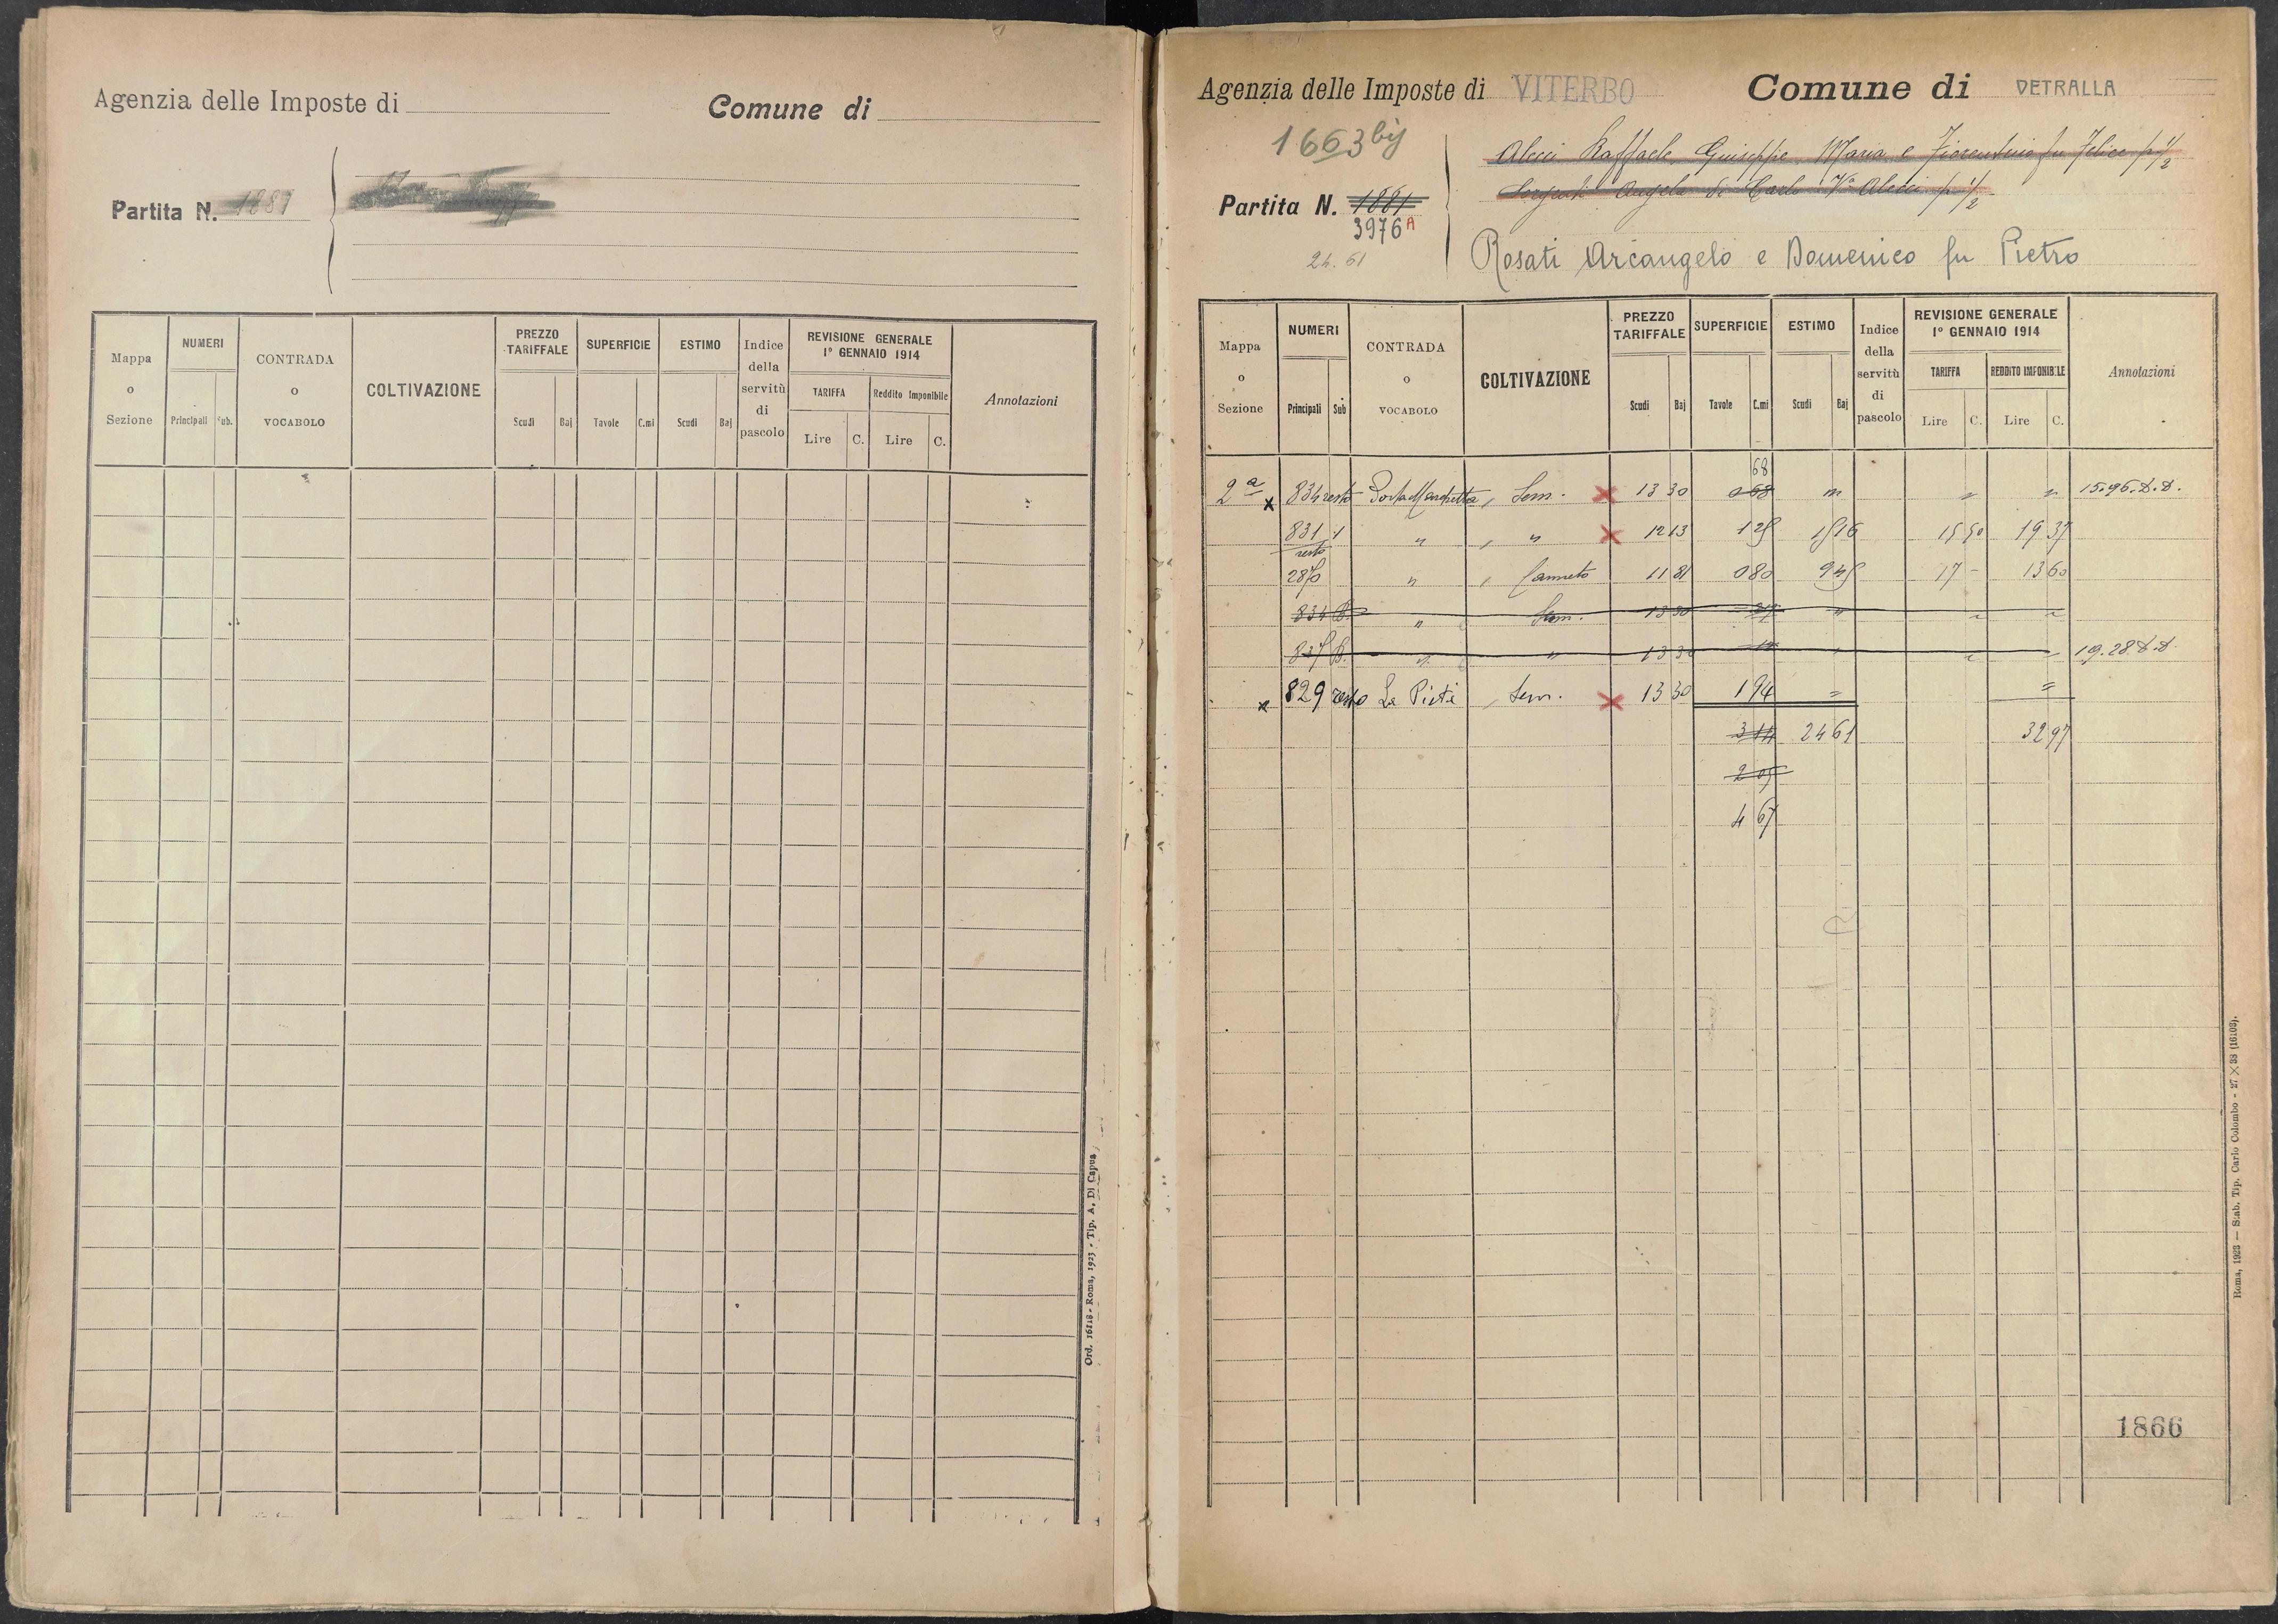 Agenzia delle Imposte di
Comune di
Partita N. 1889
Mappa o Sezione
NUMERI
Principali
Sub.
CONTRADA o VOCABOLO
COLTIVAZIONE
PREZZO TARIFFALE
Scudi
Baj
SUPERFICIE
Tavole
C.mi
ESTIMO
Scudi
Baj
Indice della servitù di pascolo
REVISIONE GENERALE
1° GENNAIO 1914
TARIFFA
Reddito Imponibile
Lire
C.
Lire
C.
Annotazioni
Ord. 16118 - Roma, 1923 - Tip. A. Di Capua
Agenzia delle Imposte di VITERBO
Comune di VETRALLA
1663 bis
Alecci Raffaele, Giuseppe, Maria e Fiorentino fu Felice p 1/2
Angela di Carlo Va Alecci p 1/2
Partita N. 1881
3976 A
24.61
Rosati Arcangelo e Domenico fu Pietro
Mappa o Sezione
NUMERI
Principali
Sub
CONTRADA o VOCABOLO
COLTIVAZIONE
PREZZO TARIFFALE
Scudi
Baj
SUPERFICIE
Tavole
C.mi
ESTIMO
Scudi
Baj
Indice della servitù di pascolo
REVISIONE GENERALE
1° GENNAIO 1914
TARIFFA
REDDITO IMPONIBILE
Lire
C.
Lire
C.
Annotazioni
68
2a x 834 resto Porta Marchetta, Sem. x 13 30 0 68 " " " 15.96.D.D.
831 1 resto " , " x 12 13 1 25 15 16 15 50 19 37
2870 " , Canneto 11 81 0 80 9 45 17 - 13 60
834 B. " Sem. 13 30 " " "
827 B. " " 13 30 " " 19.28.D.D.
x 829 resto La Pietà , Sem. x 13 30 1 94 = =
3 14 24 61 32 97
2 05
4 67
1866
Roma, 1923 — Stab. Tip. Carlo Colombo - 27 × 38 (16103).